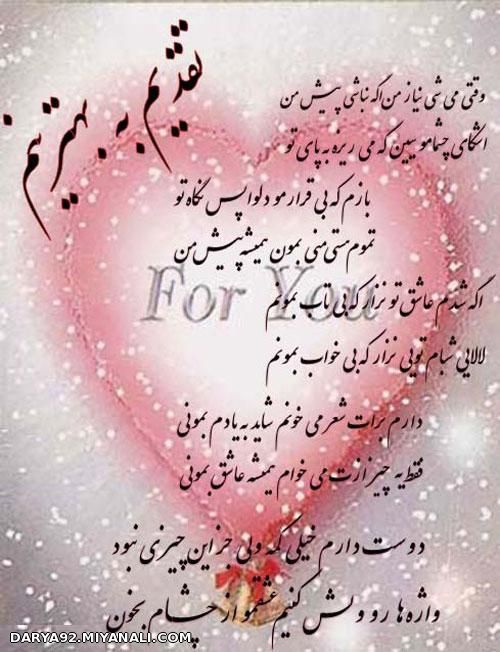 تقدیم به بهترینم
وقتی می شی نیاز من اگه نباشی پیش من
اشکای چشمامو ببین که می ریزه به پای تو
بازم که بی قرارمو دلواپس نگاه تو
تموم هستی منی بمون همیشه پیش من
For You
اگه شدم عاشق تو نزار که بی تاب بمونم
لالایی شبام تویی نزار که بی خواب بمونم
دارم برات شعر می خونم شاید به یادم بمونی
فقط یه چیز ازت می خوام همیشه عاشق بمونی
دوست دارم خیلی کمه ولی جز این چیزی نبود
واژه ها رو ولش کنیم عشقمو از چشام بخون
DARYA92.MIYANALI.COM